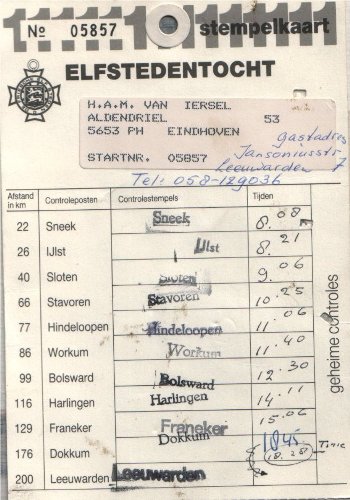 11111111111111111
№ 05857 stempelkaart
ELFSTEDENTOCHT
H.A.M. VAN IERSEL
ALDENDRIEL 53
5653 PH EINDHOVEN
STARTNR. 05857
gastadres
Jansoniusstr
Leeuwarden 7
Tel: 058-129036
Afstand in km Controleposten Controlestempels Tijden
22 Sneek Sneek 8.08
26 IJlst IJlst 8.21
40 Sloten Sloten 9.06
66 Stavoren Stavoren 10.25
77 Hindeloopen Hindeloopen 11.06
86 Workum Workum 11.40
99 Bolsward Bolsward 12.30
116 Harlingen Harlingen 14.11
129 Franeker Franeker 15.06
176 Dokkum Dokkum 18.45
(18.28)
200 Leeuwarden Leeuwarden
geheime controles